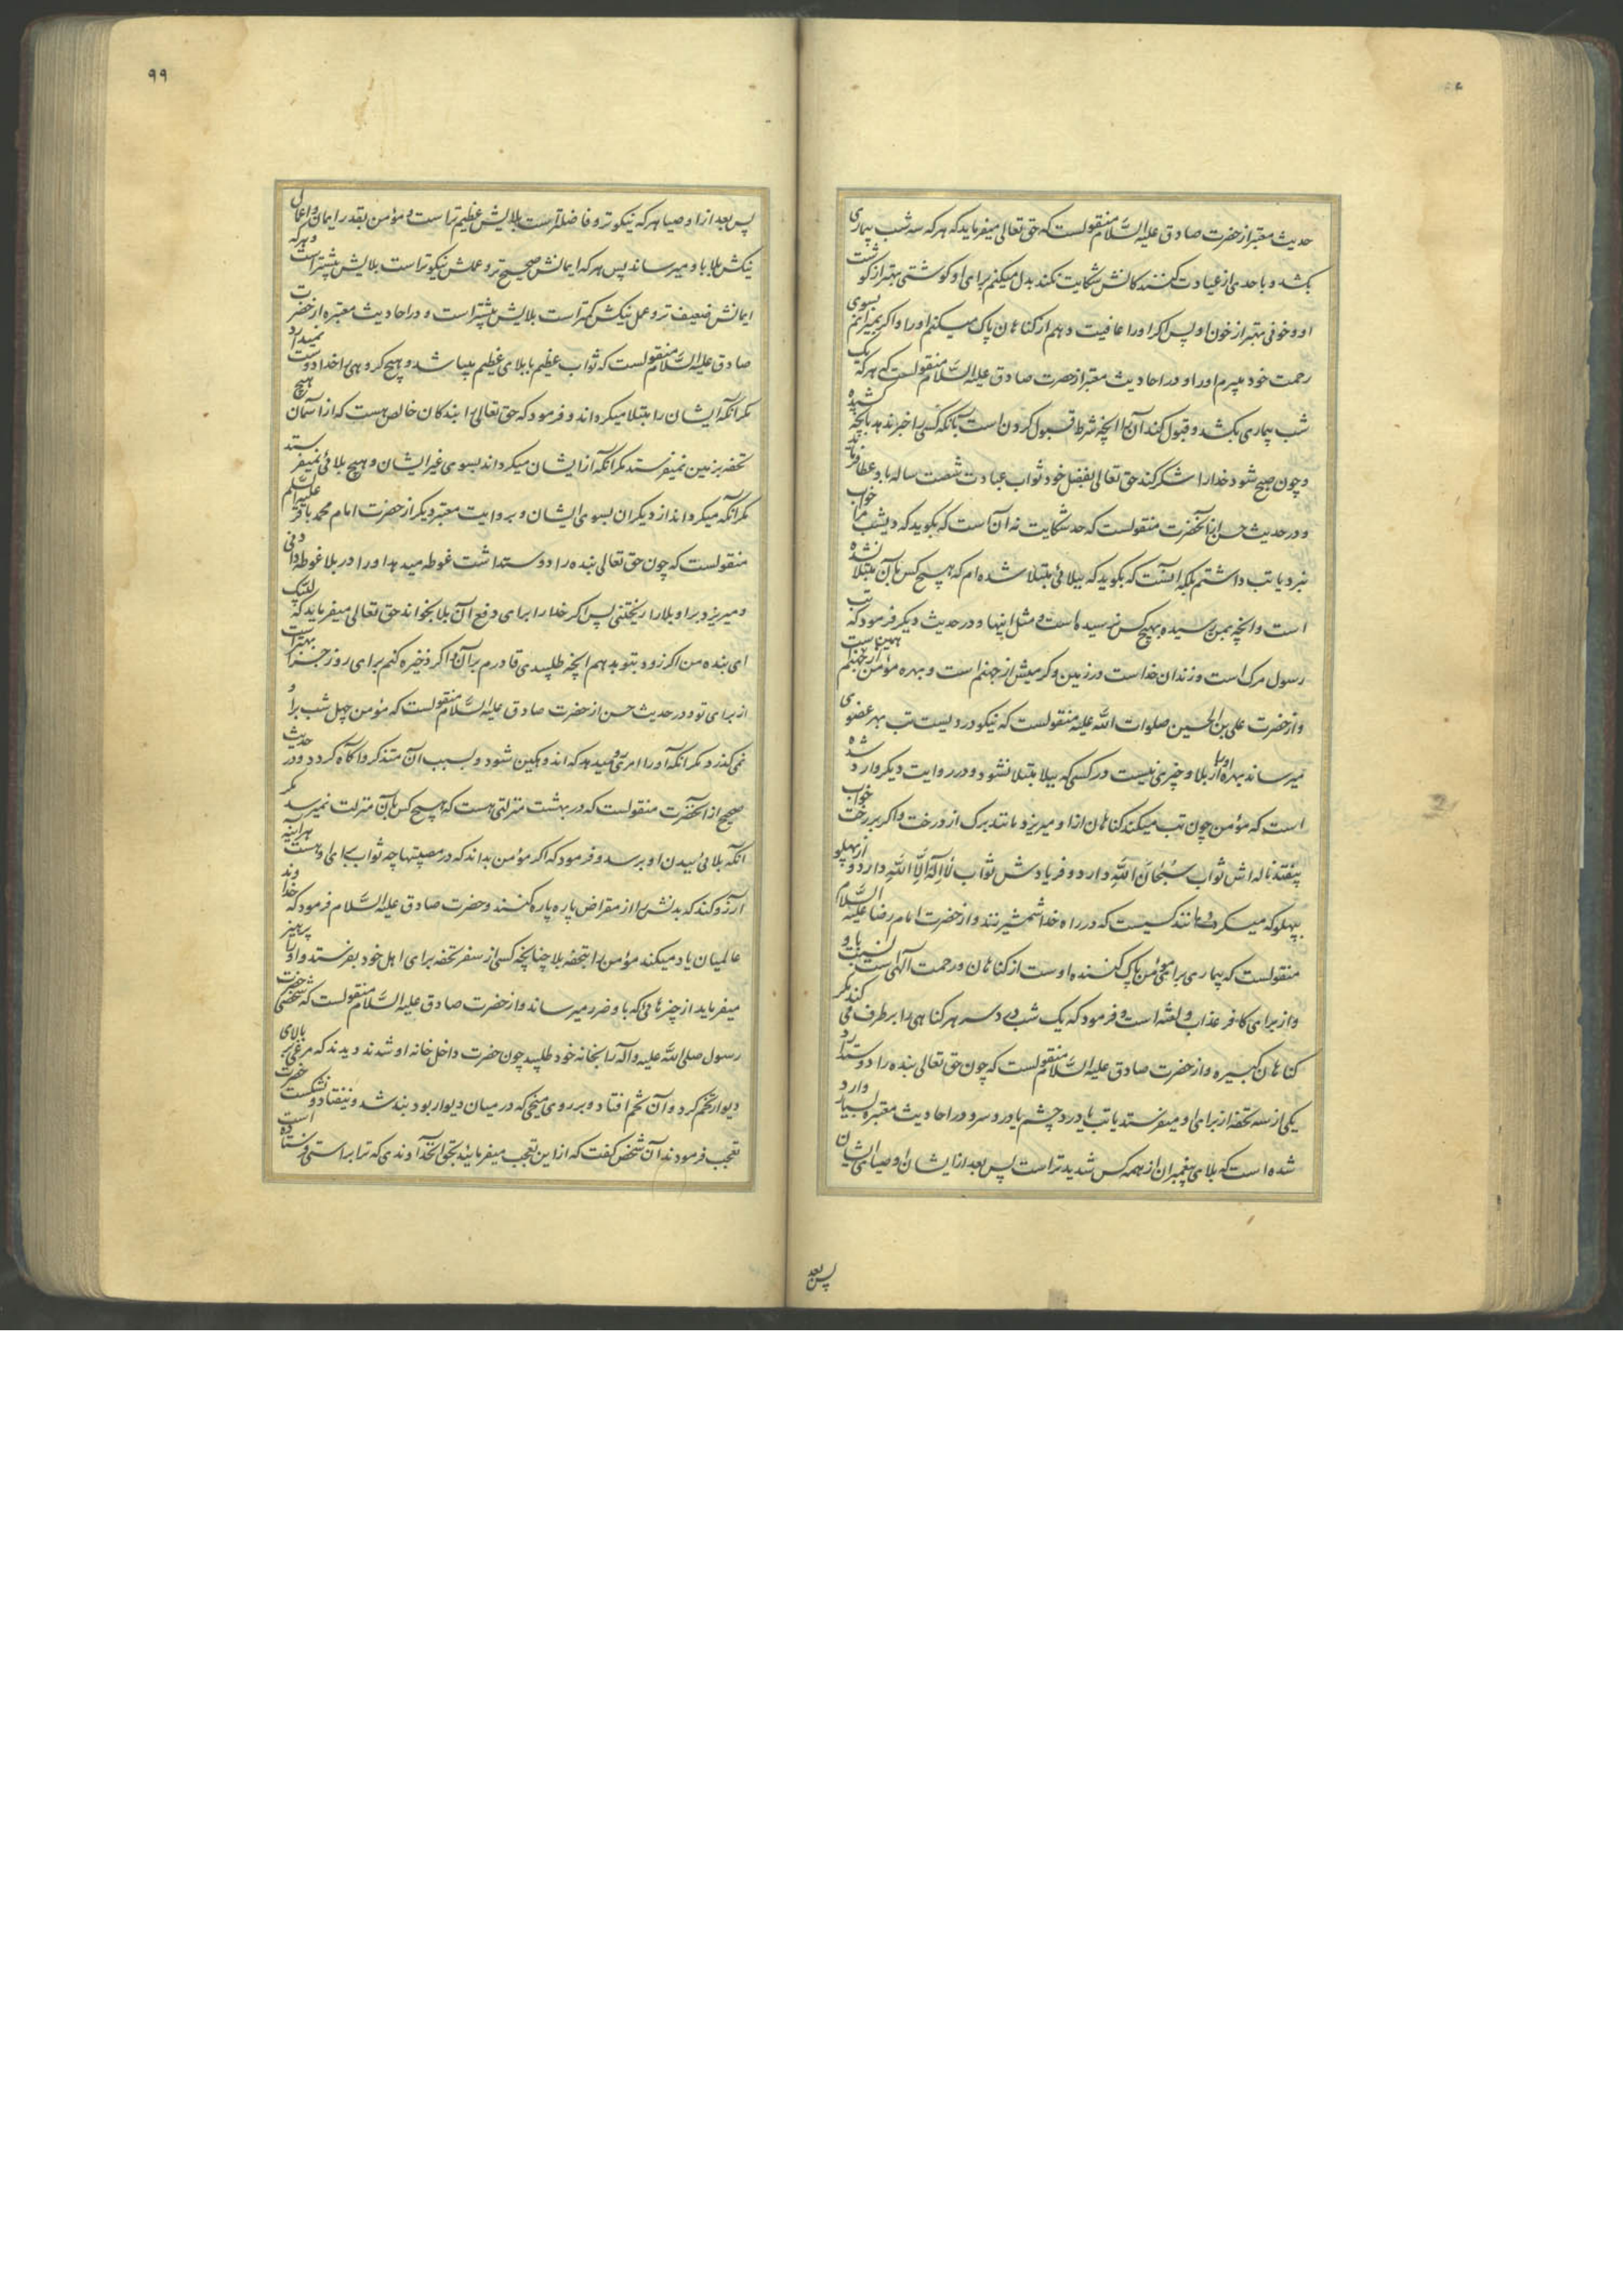 حدیث معتبر از حضرت صادق علیه السّلام منقولست که حق تعالی میفرماید که هر که سه شب بیماری
بکشد و باحدی از عیادت کنندکانش شکایت نکند بدل میکنم برای او کوشتی بهتر از کوشت
او و خونی بهتر از خون او پس اکر او را عافیت دهم از کناهان پاک میکنم او را و اکر بمیرانم بسوی
رحمت خود میبرم او را و در احادیث معتبر از حضرت صادق علیه السّلام منقولست که هر که یک
شب بیماری بکشد و قبول کند آن را انچه شرط قبول کردن است بآنکه کسی را خبر ندهد بآنچه کشیده
و چون صبح شود خدا را شکر کند حق تعالی بفضل خود ثواب عبادت شصت ساله باو عطا فرماید
و در حدیث حسن از آنحضرت منقولست که حد شکایت نه آن است که بکوید که دیشب مرا خواب
نبرد یا تب داشتم بلکه اینست که بکوید که ببلائی مبتلا شده ام که هیچ کس بآن مبتلا نشده
است و انچه بمن رسیده بهیچ کس نرسیده است و مثل اینها و در حدیث دیکر فرمود که تب
رسول مرک است و زندان خداست در زمین و کرمیش از جهنم است و بهره مؤمن از جهنم همین است
و از حضرت علی بن الحسین صلوات الله علیه منقولست که نیکو دردیست تب بهر عضوی
میرساند بهره او را از بلا و خیری نیست در کسی که ببلا مبتلا نشود و در روایت دیکر وارد شده
است که مؤمن چون تب میکند کناهان از او میریزد مانند برک از درخت و اکر بر رخت خواب
بیفتد ناله اش ثواب سُبْحَانَ اللَّهِ دارد و فریادش ثواب لَا اِلَهَ اِلَّا اللَّه دارد و از پهلو
بپهلو که میکردد مانند کسیست که در راه خدا شمشیر زند و از حضرت امام رضا علیه السّلام
منقولست که بیماری برای مؤمن پاک کننده اوست از کناهان و رحمت الهی است نسبت باو
و از برای کافر عذاب و لعنه است و فرمود که یک شب درد سر هر کناهی را بر طرف می کند مکر
کناهان کبیره و از حضرت صادق علیه السّلام منقولست که چون حق تعالی بنده را دوست دارد
یکی از سه تحفه از برای او میفرستد یا تب یا درد چشم یا درد سر و در احادیث معتبره بسیار وارد
شده است که بلای پیغمبران از همه کس شدیدتر است پس بعد از ایشان اوصیای ایشان
پس بعد
۹۹
پس بعد از اوصیا هر که نیکوتر و فاضلتر است بلایش عظیم تر است و مؤمن بقدر ایمان و اعمال
نیکش بلا باو میرساند پس هر که ایمانش صحیح تر و عملش نیکوتر است بلایش بیشتر است و هر که
ایمانش ضعیف تر و عمل نیکش کمتر است بلایش بیشتر است و در احادیث معتبره از حضرت
صادق علیه السّلام منقولست که ثواب عظیم با بلای عظیم میباشد و هیچ کروهی را خدا دوست نمیدارد
مکر آنکه ایشان را مبتلا میکرداند و فرمود که حق تعالی را بندکان خالص هست که از آسمان هیچ
تحفه بزمین نمیفرستد مکر آنکه از ایشان میکرداند بسوی غیر ایشان و هیچ بلائی نمیفرستد
مکر آنکه میکرداند از دیکران بسوی ایشان و بروایت معتبر دیکر از حضرت امام محمد باقر علیه السلم
منقولست که چون حق تعالی بنده را دوست داشت غوطه میدهد او را در بلا غوطه دادنی
و میریزد بر او بلا را ریختنی پس اکر خدا را برای دفع آن بلا بخواند حق تعالی میفرماید که لبیک
ای بنده من اکر زود بتو بدهم انچه طلبیدی قادرم بر آن و اکر ذخیره کنم برای روز جزا بهتر است
از برای تو و در حدیث حسن از حضرت صادق علیه السّلام منقولست که مؤمن چهل شب بر او
نمی کذرد مکر آنکه او را امری رو میدهد که اندوهکین شود و بسبب آن متذکر و آکاه کردد و در حدیث
صحیح از آنحضرت منقولست که در بهشت منزلتی هست که هیچ کس بآن منزلت نمیرسد مکر
آنکه بلائی ببدن او برسد و فرمود که اکر مؤمن بداند که در مصیبتها چه ثواب برای او هست هر آینه
آرزو کند که بدنش را از مقراض پاره پاره کنند و حضرت صادق علیه السّلام فرمود که خداوند
عالمیان یاد میکند مؤمن را بتحفه بلا چنانچه کسی از سفر تحفه برای اهل خود بفرستد و او را پرهیز
میفرماید از چیزهائی که باو ضرر میرساند و از حضرت صادق علیه السّلام منقولست که شخصی حضرت
رسول صلی الله علیه و اله را بخانه خود طلبید چون حضرت داخل خانه او شدند دیدند که مرغی بر بالای
دیوار تخم کرد و آن تخم افتاد و بر روی میخی که در میان دیوار بود بند شد و نیفتاد و نشکست حضرت
تعجب فرمودند آن شخص کفت که از این تعجب میفرمائید بحق انخداوندی که ترا براستی فرستاده است